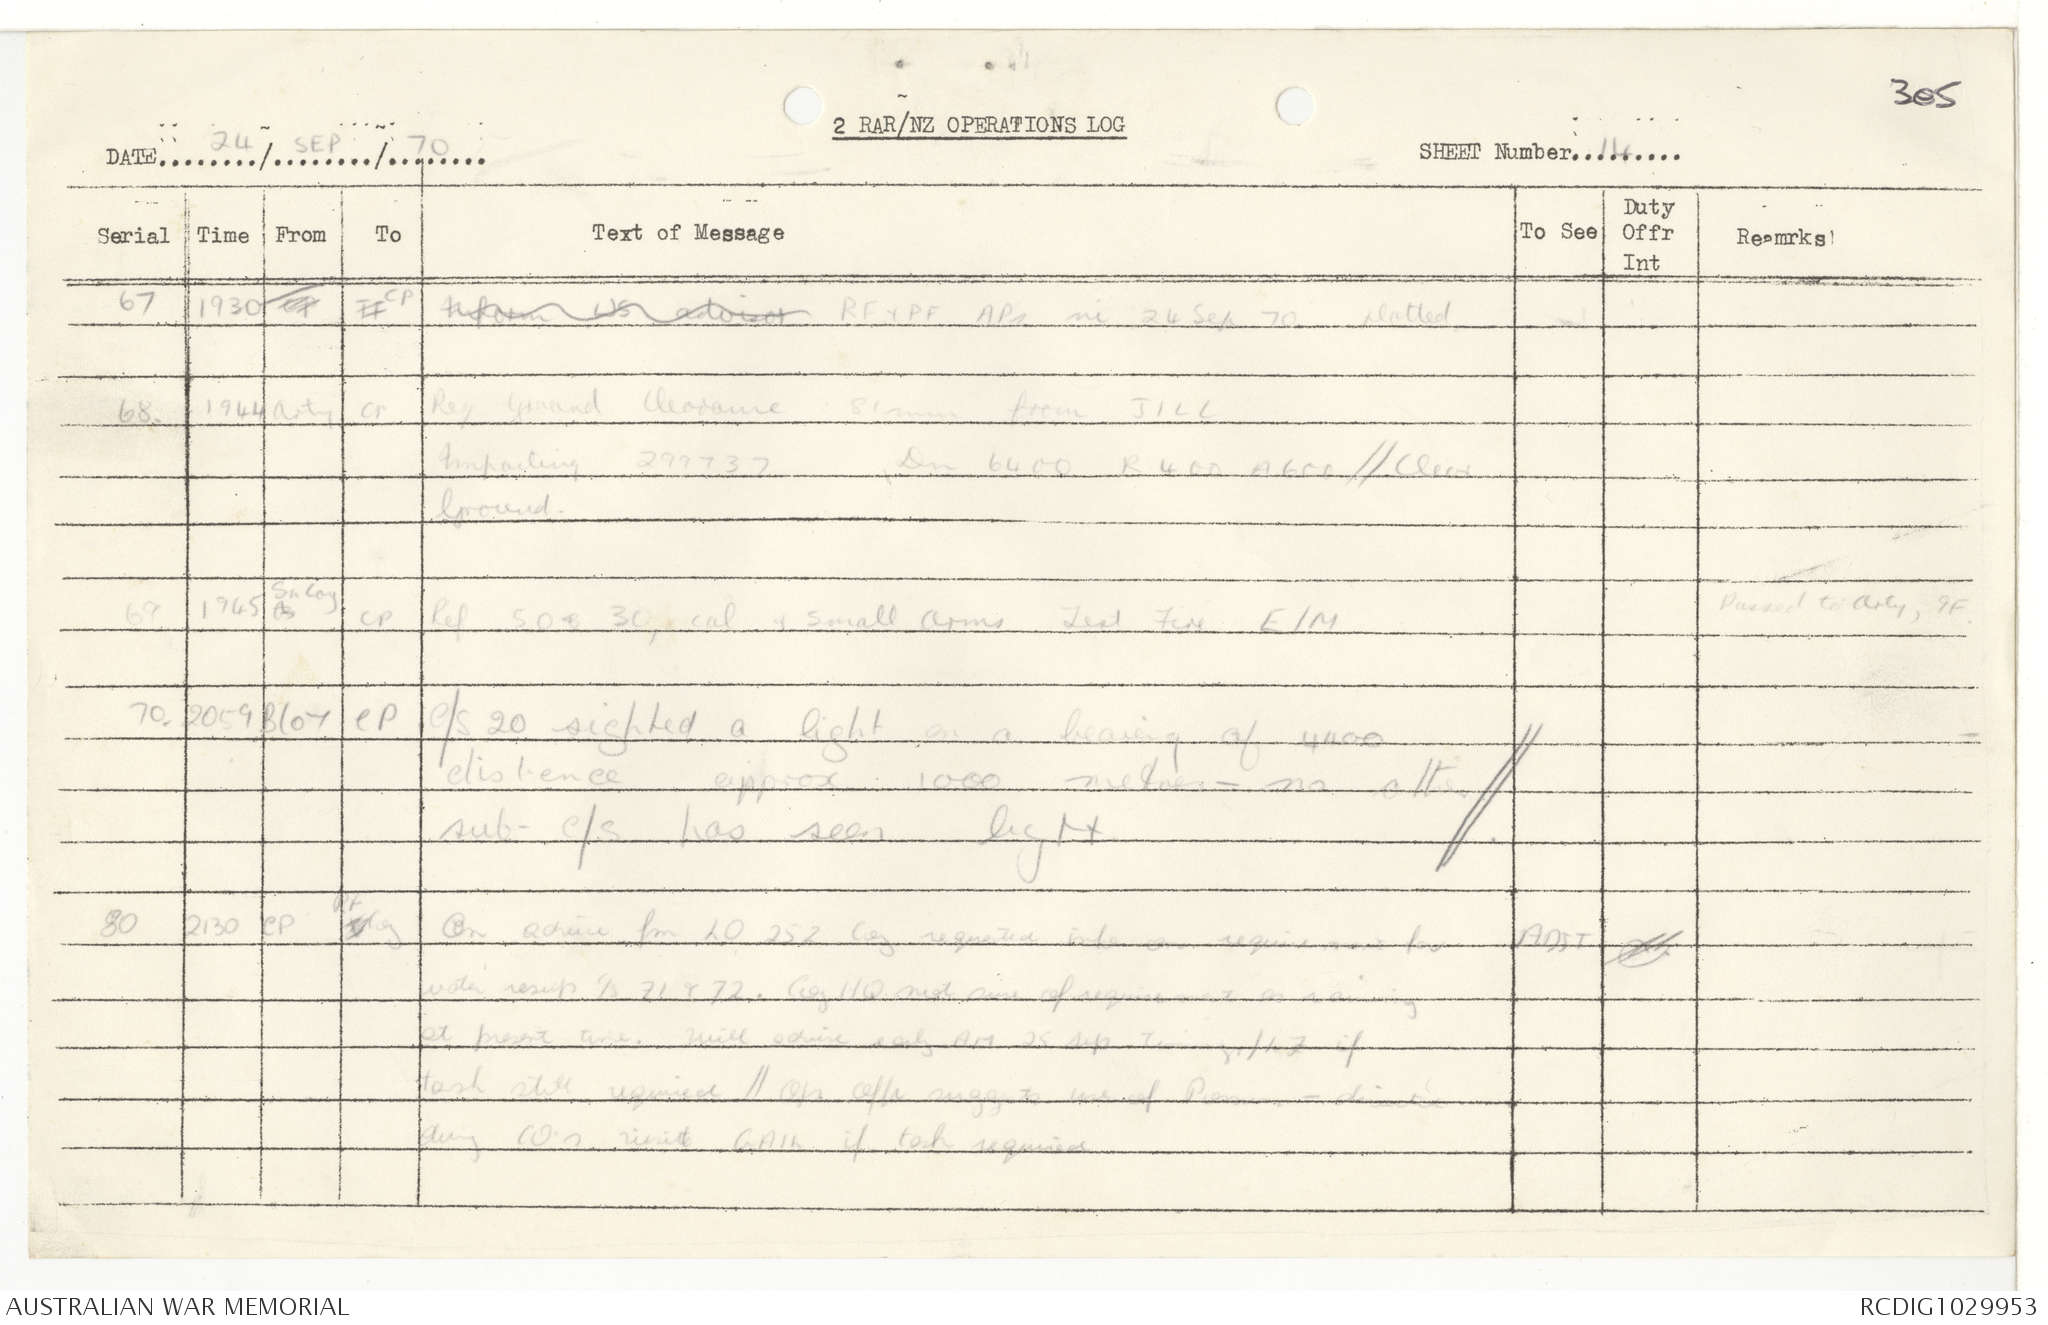 305
2 RAR/NZ OPERATIONS LOG
DATE 24 / SEP / 70
SHEET Number 14
Serial Time From To Text of Message To See Duty Offr Int Remrks
67 1930 CP RF & PF APs ni 24 Sep 70 plotted
68. 1944 Arty CP Req Ground Clearance 81mm from JILL
Impacting 299737 Dn 6400 R 400 A600 // Clear
Ground.
69 1945 CP Ref 50 & 30, cal & Small Arms Test Fire E/M Passed to Arty, 9F.
70. 2059 CP C/S 20 sighted a light on a bearing of 4400
distence approx 1000 metres - no other
sub- C/S has seen light //
80 2130 CP On advice fm LO 252 Coy requested requirement for ADJT
water resup C/S 71 & 72. Coy HQ not sure of requirement as raining
at present time. Will advise early AM 25 Sep Timings/LZ if
task still required // Ops Offr suggests use of Possum -
during CO's visit if task required
AUSTRALIAN WAR MEMORIAL
RCDIG1029953